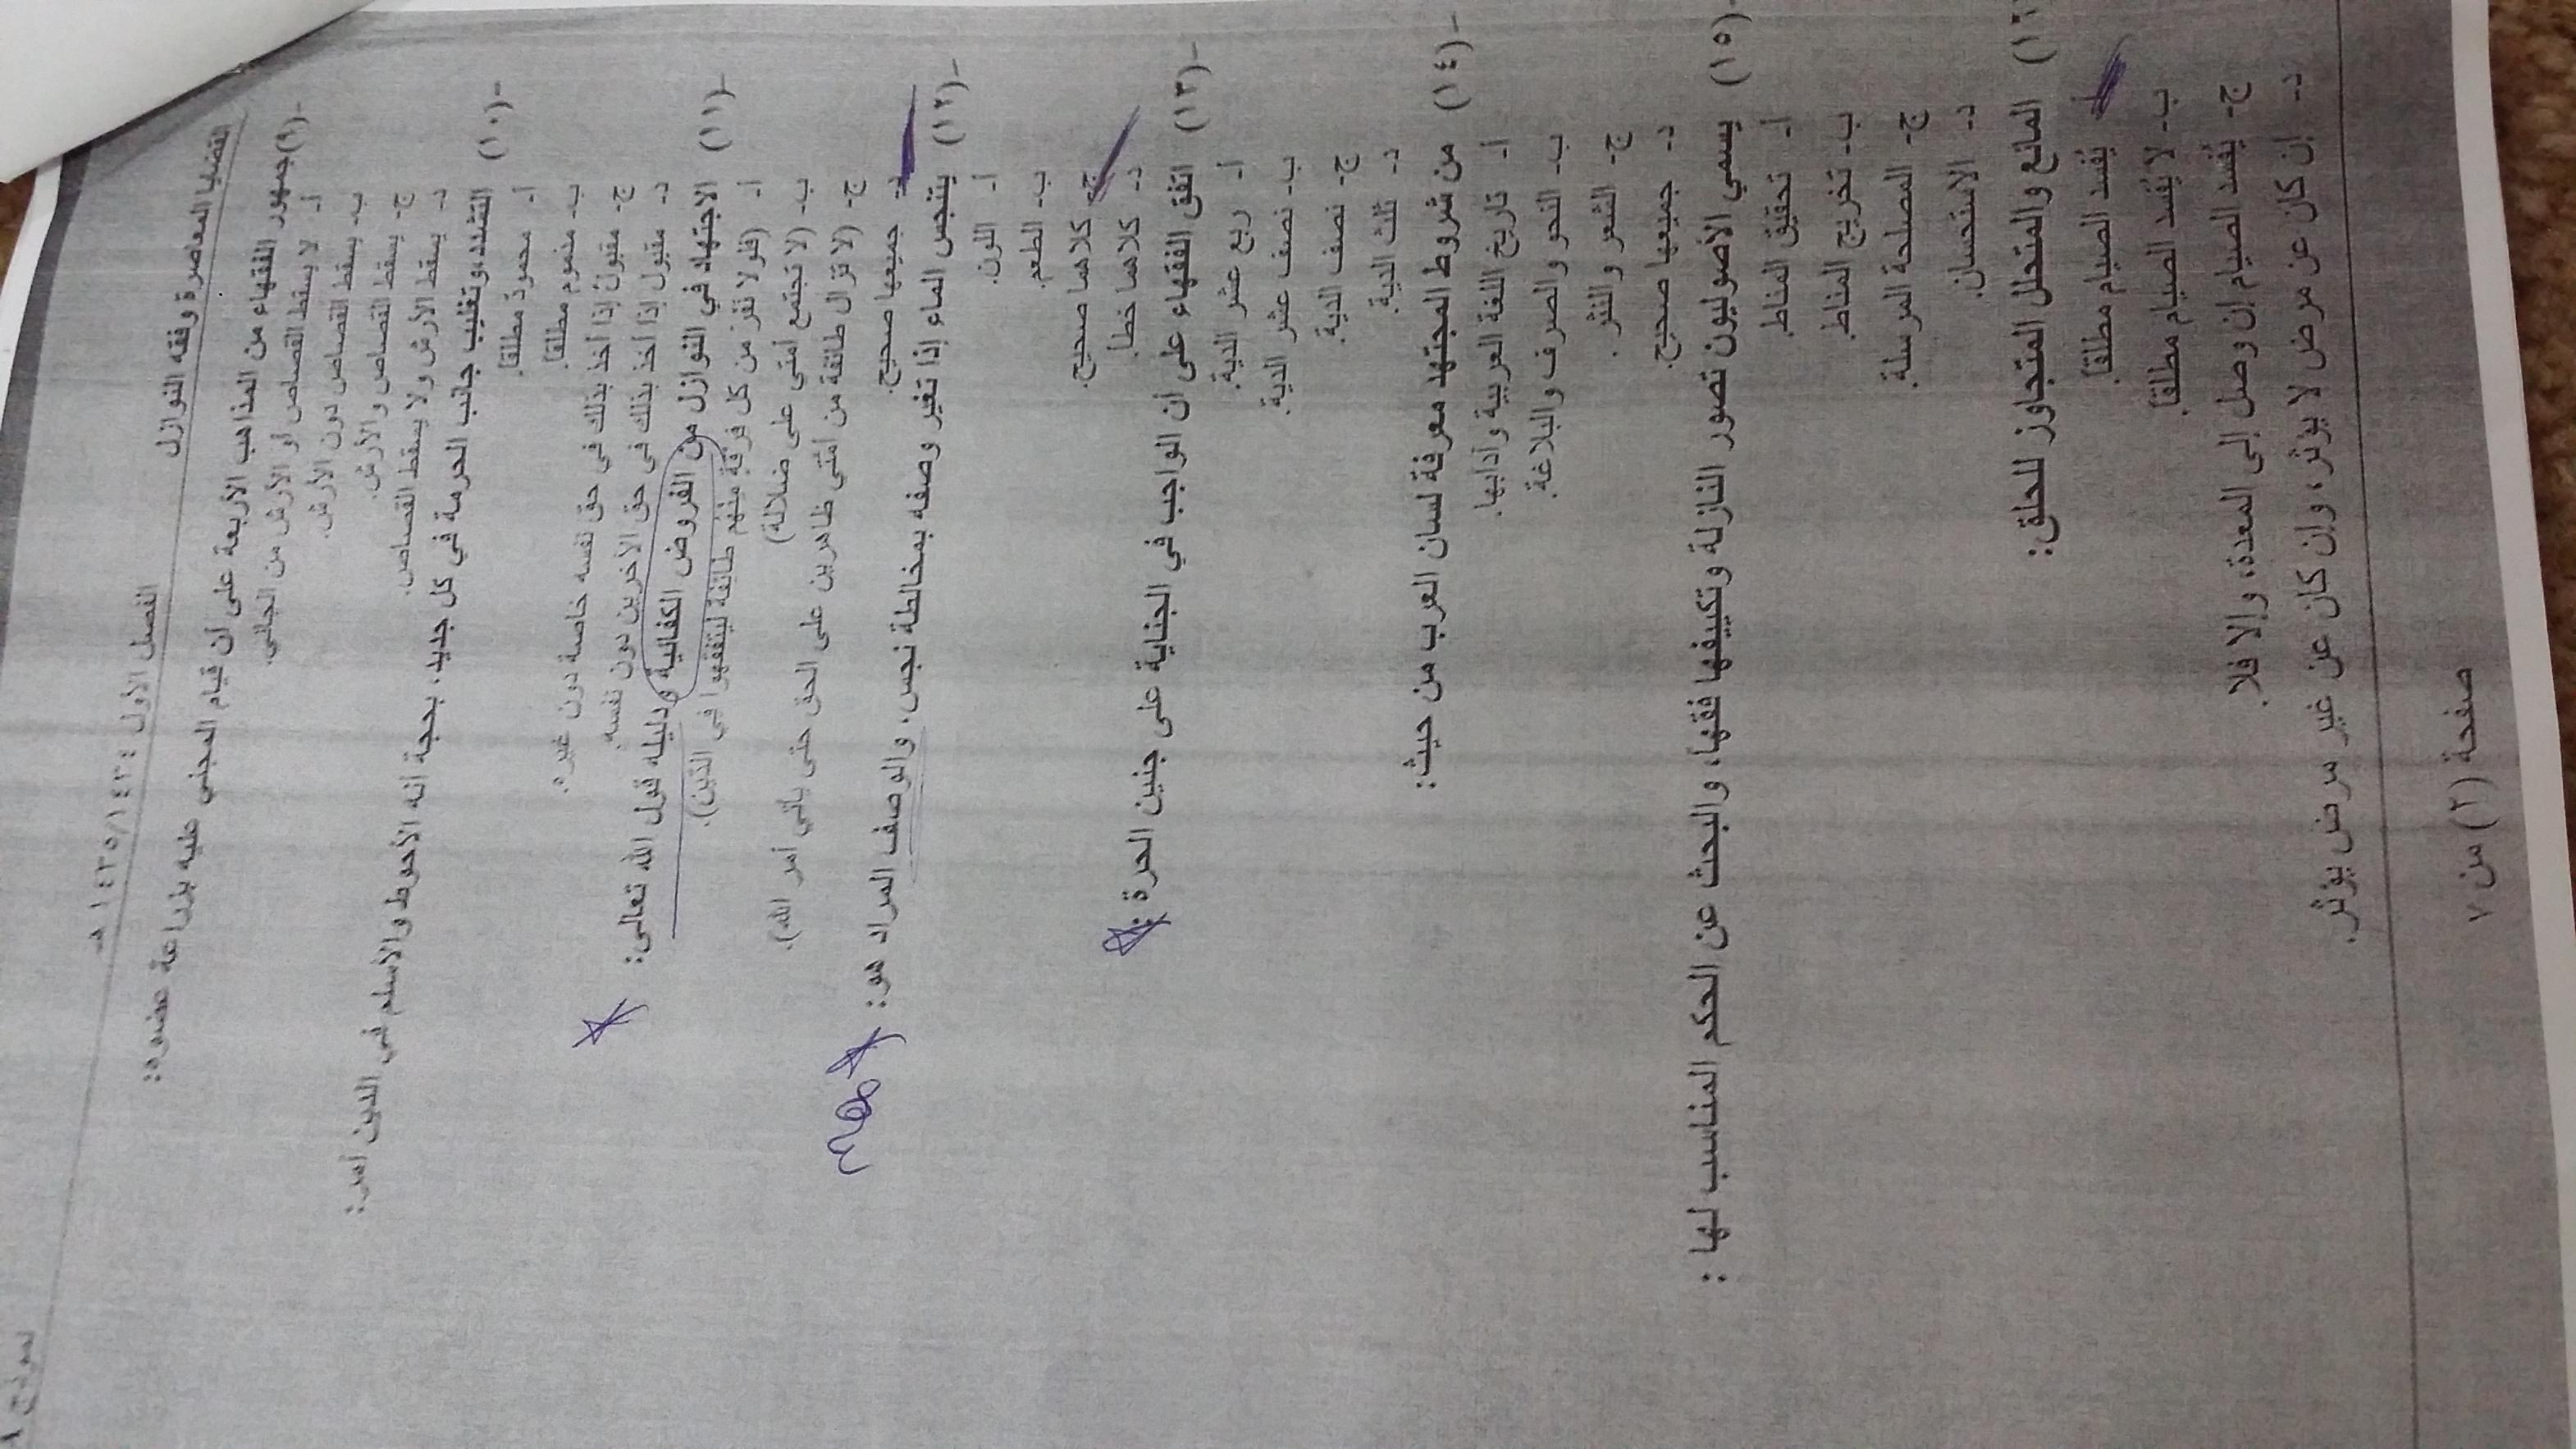 نموذج أ
القضايا المعاصرة وفقه النوازل
الفصل الأول ١٤٣٤/١٤٣٥ هـ
(٩)- جمهور الفقهاء من المذاهب الأربعة على أن قيام المجني عليه بزراعة عضوه:
أ- لا يسقط القصاص أو الأرش من الجاني.
ب- يسقط القصاص دون الأرش.
ج- يسقط القصاص والأرش.
د- يسقط الأرش ولا يسقط القصاص.
(١٠)- التشدد وتغليب جانب الحرمة في كل جديد، بحجة أنه الأحوط والأسلم في الدين أمر:
أ- محمود مطلقاً.
ب- مذموم مطلقاً.
ج- مقبول إذا أخذ بذلك في حق نفسه خاصة دون غيره.
د- مقبول إذا أخذ بذلك في حق الآخرين دون نفسه.
(١١)- الاجتهاد في النوازل من الفروض الكفائية ودليله قول الله تعالى:
أ- (فلولا نفر من كل فرقة منهم طائفة ليتفقهوا في الدين).
ب- (لا تجتمع أمتي على ضلالة)
ج- (لا تزال طائفة من أمتي ظاهرين على الحق حتى يأتي أمر الله).
د- جميعها صحيح.
(١٢)- يتنجس الماء إذا تغير وصفه بمخالطة نجس، والوصف المراد هو:
أ- اللون.
ب- الطعم.
ج- كلاهما صحيح.
د- كلاهما خطأ.
(١٣)- اتفق الفقهاء على أن الواجب في الجناية على جنين الحرة:
أ- ربع عشر الدية.
ب- نصف عشر الدية.
ج- نصف الدية.
د- ثلث الدية.
(١٤)- من شروط المجتهد معرفة لسان العرب من حيث:
أ- تاريخ اللغة العربية وآدابها.
ب- النحو والصرف والبلاغة.
ج- الشعر والنثر.
د- جميعها صحيح.
(١٥)- يسمي الأصوليون تصور النازلة وتكييفها فقهياً، والبحث عن الحكم المناسب لها:
أ- تحقيق المناط.
ب- تخريج المناط.
ج- المصلحة المرسلة.
د- الاستحسان.
(١٦) المائع والمتحلل المتجاوز للحلق:
يُفسد الصيام مطلقاً.
ب- لا يُفسد الصيام مطلقاً.
ج- يُفسد الصيام إن وصل إلى المعدة، وإلا فلا.
د- إن كان عن مرض لا يؤثر، وإن كان عن غير مرض يؤثر.
صفحة (٢) من ٧